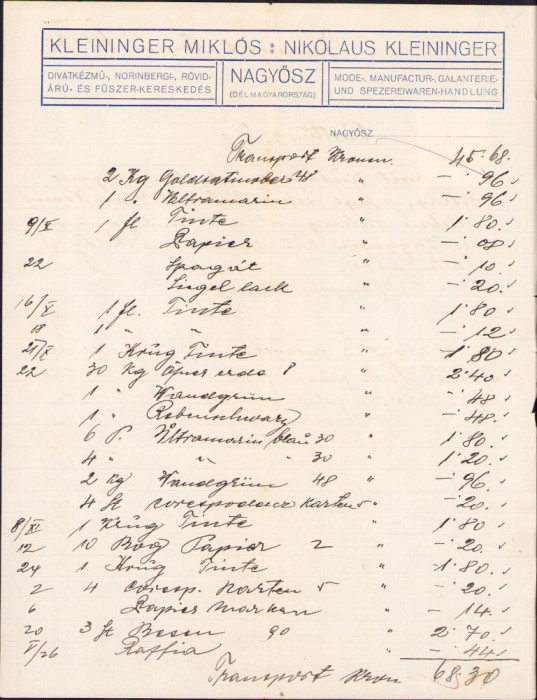 KLEININGER MIKLÓS : NIKOLAUS KLEININGER
DIVATKÉZMŰ-, NORINBERGI-, RÖVID-
ÁRÚ- ÉS FŰSZER-KERESKEDÉS
NAGYŐSZ
(DÉLMAGYARORSZÁG)
MODE-, MANUFACTUR-, GALANTERIE-
UND SPEZEREIWAREN-HANDLUNG
NAGYŐSZ
Transport Kronen 45·68
2 Kg 48 " — 96
1 " Ultramarin " — 96
9/X 1 fl Tinte " 1·80
Papier " — 08
22 Spagát " — 10
Siegel lack " — 20
16/X 1 fl. Tinte " 1·80
18 1 " " " — 12
21/X 1 Krüg Tinte " 1·80
22 30 Kg erde 8 " 2·40
1 " Wandgrün " — 48
1 " Rebenschwarz " — 48
6 P. Ultramarin blau 30 " 1·80
4 " " " 30 " 1·20
2 Kg Wandgrün 48 " — 96
4 St Corespodacz Karten 5 " — 20
8/XI 1 Krüg Tinte " 1·80
12 10 Bog Papier 2 " — 20
24 1 Krüg Tinte " 1·80
2 4 Coresp. Karten 5 " — 20
6 Papier Marken " — 14
20 3 St Besen 90 " 2·70
/26 Raffia " — 44
Transport Kron 68·30